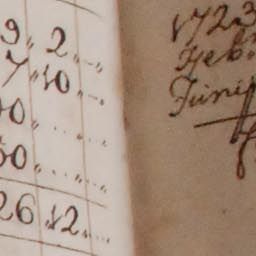 9„ 2„ „
7„ 10„ „
00„ ... „ ...
50„ ... „ ...
26„ 12„ ...
1723
Febr
Junij